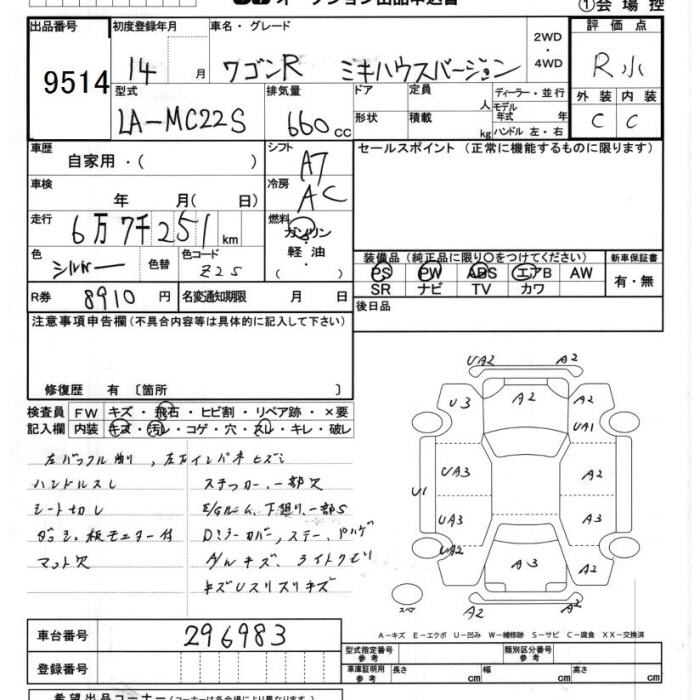 オークション出品申込書
①会場控
出品番号 初度登録年月 車名・グレード 評価点
9514 14月 ワゴンR ミキハウスバージョン 2WD・4WD R
型式 排気量 ドア 定員 人 ディーラー・並行 外装 内装
モデル年式 年
LA-MC22S 660cc 形状 積載 kg ハンドル 左・右 C C
車歴 シフト セールスポイント (正常に機能するものに限ります)
自家用・( ) A7
車検 冷房
年 月( 日) AC
走行 燃料
6万7千251km ガソリン
色 色替 色コード 軽油
シルバー Z2S ( )
装備品 (純正品に限り○をつけてください) 新車保証書
PS PW ABS エアB AW 有・無
SR ナビ TV カワ
R券 8910円 名変通知期限 月 日 後日品
注意事項申告欄(不具合内容等は具体的に記入して下さい)
修復歴 有 〔箇所 〕
検査員 FW キズ・飛石・ヒビ割・リペア跡・×要
記入欄 内装 キズ・汚レ・コゲ・穴・スレ・キレ・破レ
ハンドルスレ ステッカー、一部欠
シート切レ E/Gルーム、下廻り、一部S
マット欠 キズ、ライトクモリ
UA2 A2
U3 A2 A2
UA1
UA3 A2
U1
UA3 A3
UA2 A3 A2
スペア A2 A2
A-キズ E-エクボ U-凹み W-補修跡 S-サビ C-腐食 XX-交換済
車台番号 296983
型式指定番号 参考 類別区分番号 参考
登録番号 車庫証明用 参考 長さ cm 幅 cm 高さ cm
希望出品コーナー(コーナーは各会場により異なります)